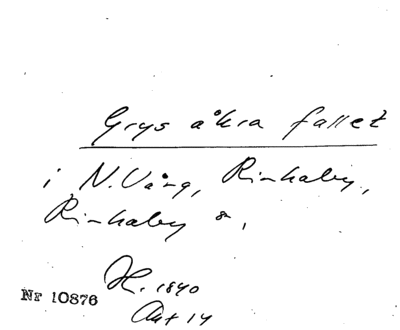 Grys åkra fallet
i N. Vång, Rinkaby,
Rinkaby s,
H. 1840
Akt 14
Nr 10876